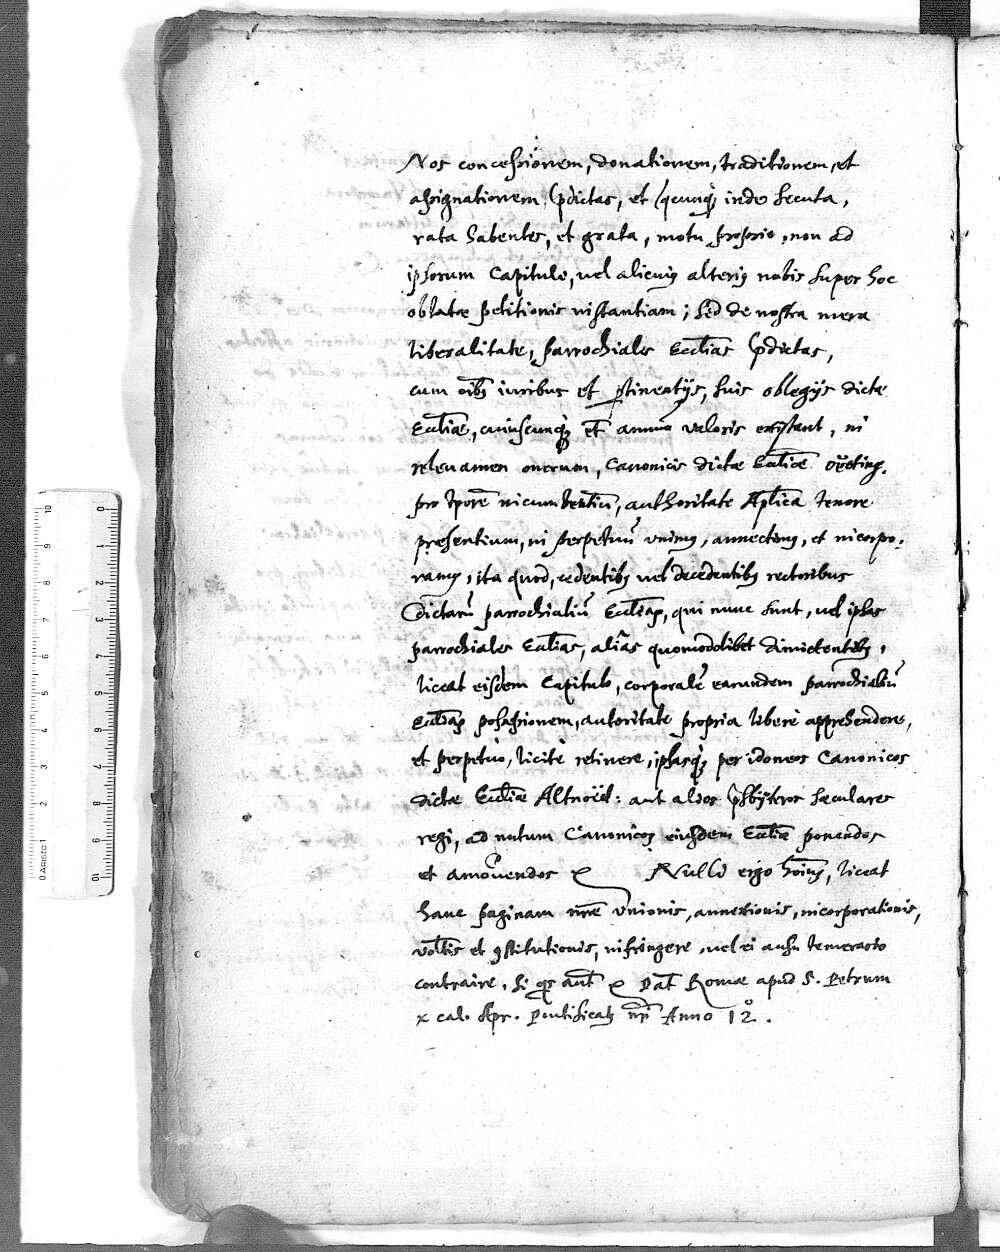 Nos concessionem, donationem, traditionem, et
assignationem pdictas, et quęcunq; inde secuta,
rata habentes, et grata, motu proprio, non ad
ipsorum Capituli, vel alicuiꝰ alteriꝰ nobis super hoc
oblatæ petitionis instantiam; sed de nostra mera
liberalitate, parrochiales Ecclias pdictas,
cum oibꝰ iuribus et ptinentijs, suis
Eccliæ, cuiuscunq; et annui valoris existant, in
relevamen onerum, Canonicis dictæ Eccliæ
pro tpore incumbentiũ, authoritate Aplica tenore
presentium, in perpetuũ unimꝰ, annectimꝰ, et incorpo-
ramꝰ, ita quod, cedentibꝰ vel decedentibꝰ rectoribus
dictarũ parrochialiũ Eccliaꝝ, qui nunc sunt, vel ipsas
parrochiales Ecclias, aliâs quomodolibet dimittentibꝰ,
liceat eisdem Capitulo, corporalẽ earundem parrochialiũ
Eccliaꝝ possessionem, autoritate propria liberè apprehendere,
et perpetuò, licitè retinere, ipsasq; per idoneos Canonicos
dictæ Eccliæ aut alios psbyteros sæculares
regi, ad nutum Canonicoꝝ eiusdem Eccliæ ponendos
et amovendos &c Nulli ergo hoinũ, liceat
hanc paginam nræ Unionis, annexionis, incorporationis,
voltis et ꝯstitutionis, infringere, vel ei ausu temerario
contraire, si qs aut &c Dat Romæ apud S. Petrum
x cal. Apr. Pontificatꝰ nri Anno 12º.